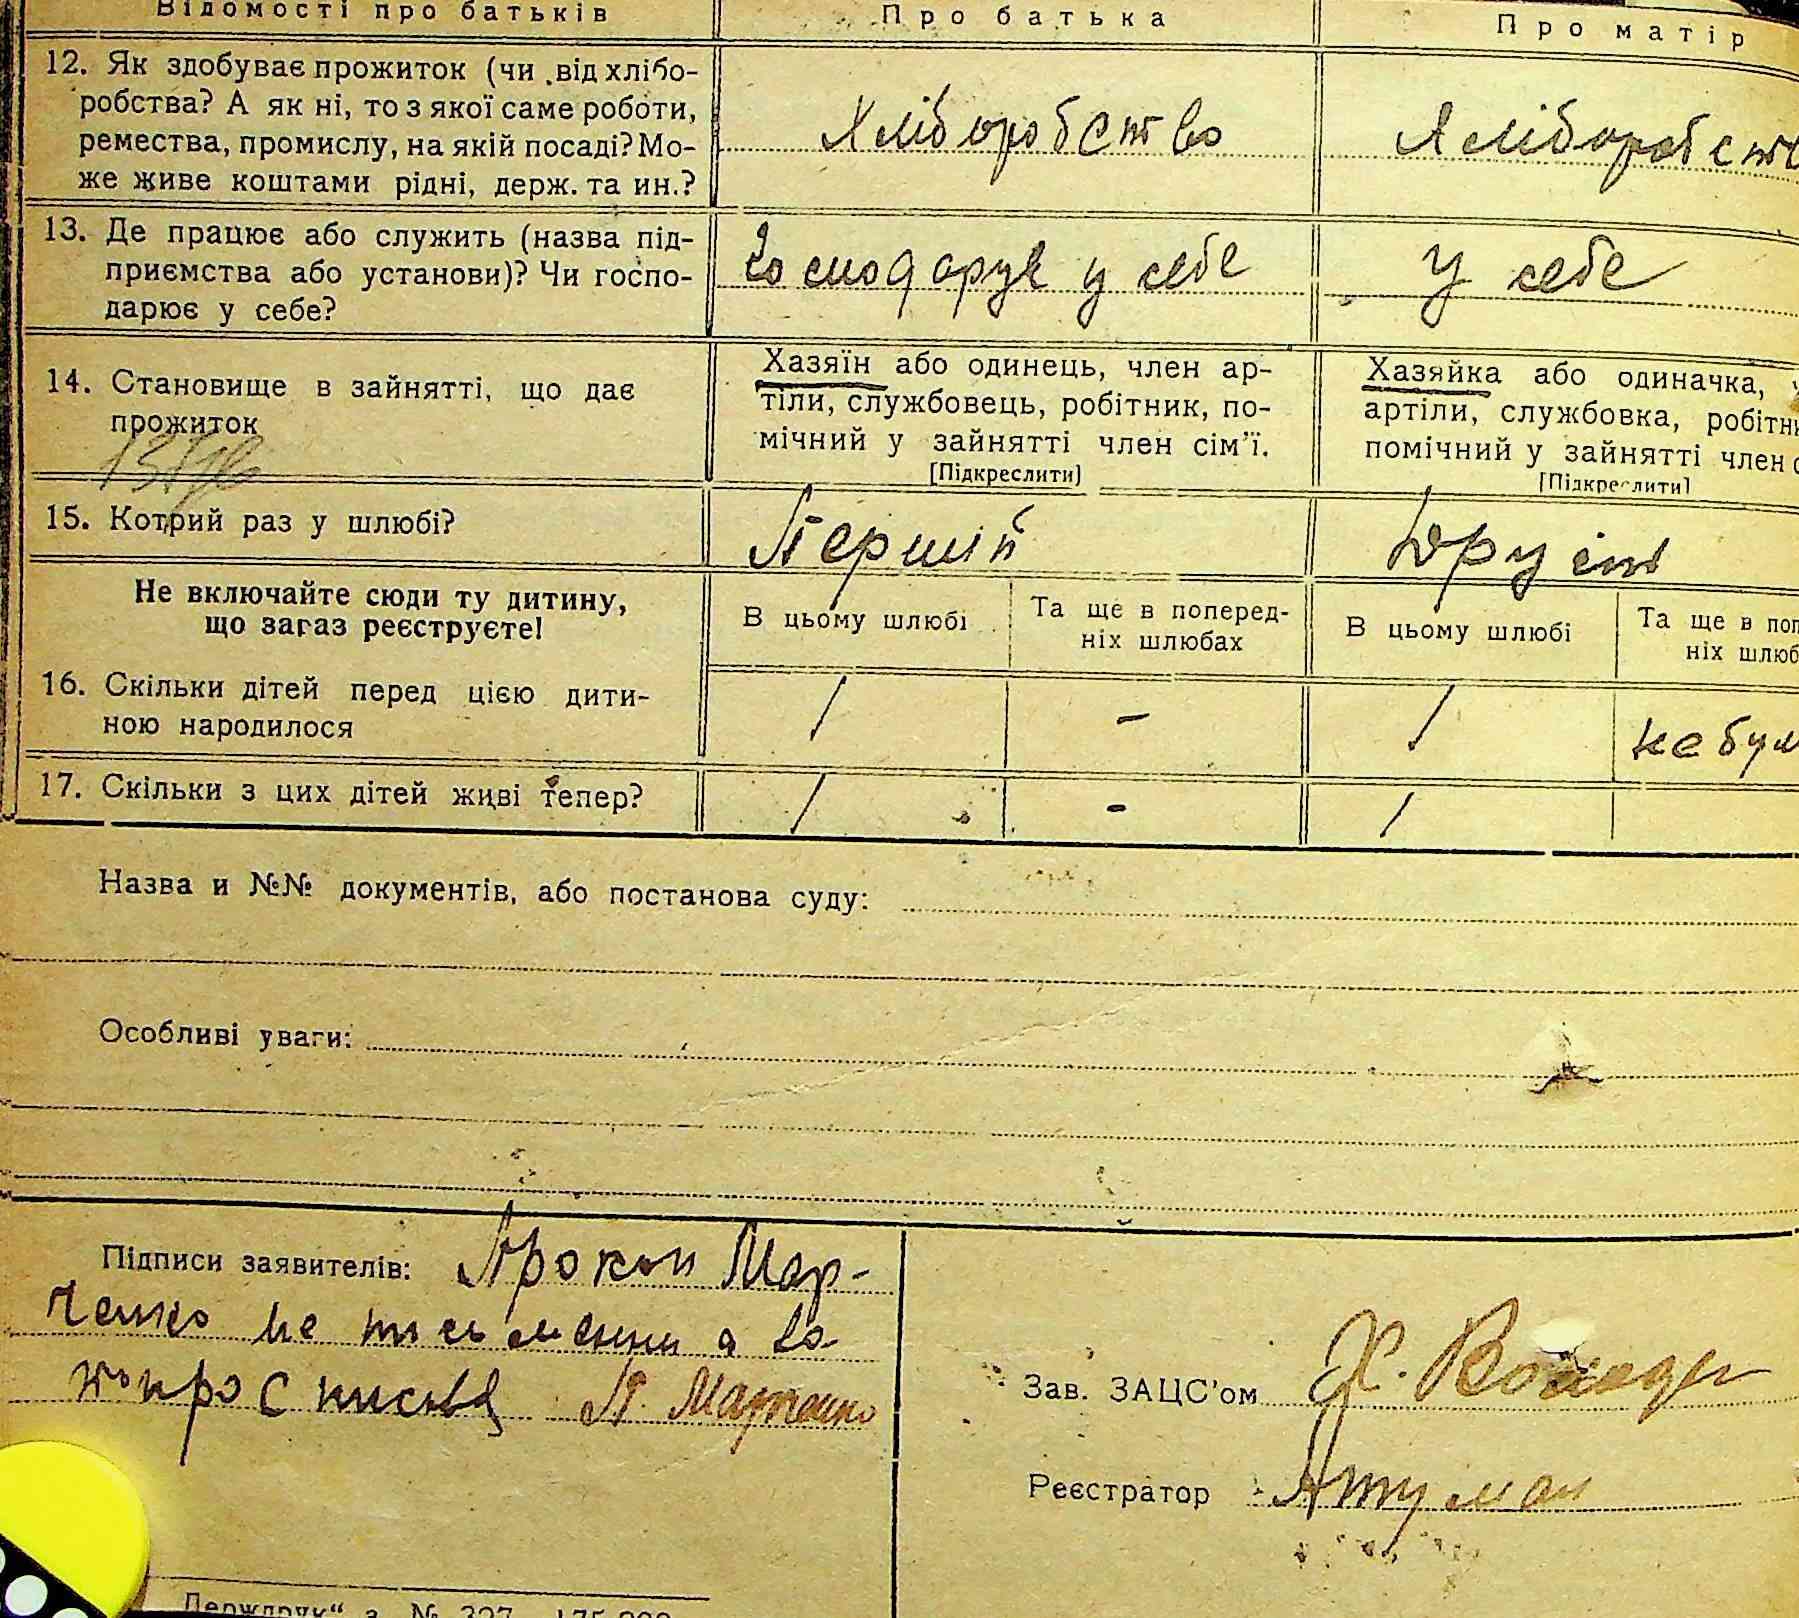 Відомості про батьків Про батька Про матір
12. Як здобуває прожиток (чи від хлібо-
робства? А як ні, то з якої саме роботи,
ремества, промислу, на якій посаді? Мо-
же живе коштами рідні, держ. та ин.?
Хліборобство Хліборобств
13. Де працює або служить (назва під-
приємства або установи)? Чи госпо-
дарює у себе?
Господарує у себе У себе
14. Становище в зайнятті, що дає
прожиток
Хазяїн або одинець, член ар-
тіли, службовець, робітник, по-
мічний у зайнятті член сім'ї.
[Підкреслити]
Хазяйка або одиначка,
артіли, службовка, робітн
помічний у зайнятті член с
[Підкреслити]
15. Котрий раз у шлюбі? Перший Другий
Не включайте сюди ту дитину,
що зараз реєструєте!
В цьому шлюбі Та ще в поперед-
ніх шлюбах
В цьому шлюбі Та ще в поп
ніх шлюб
16. Скільки дітей перед цією дити-
ною народилося
1 - 1 не бул
17. Скільки з цих дітей живі тепер? 1 - 1
Назва и №№ документів, або постанова суду:
Особливі уваги:
Підписи заявителів: Прокоп Мар-
ченко не письменни а за-
його просписавсь П. Марченко
Зав. ЗАЦС'ом Х.
Реєстратор
Держдрук" з. № 327